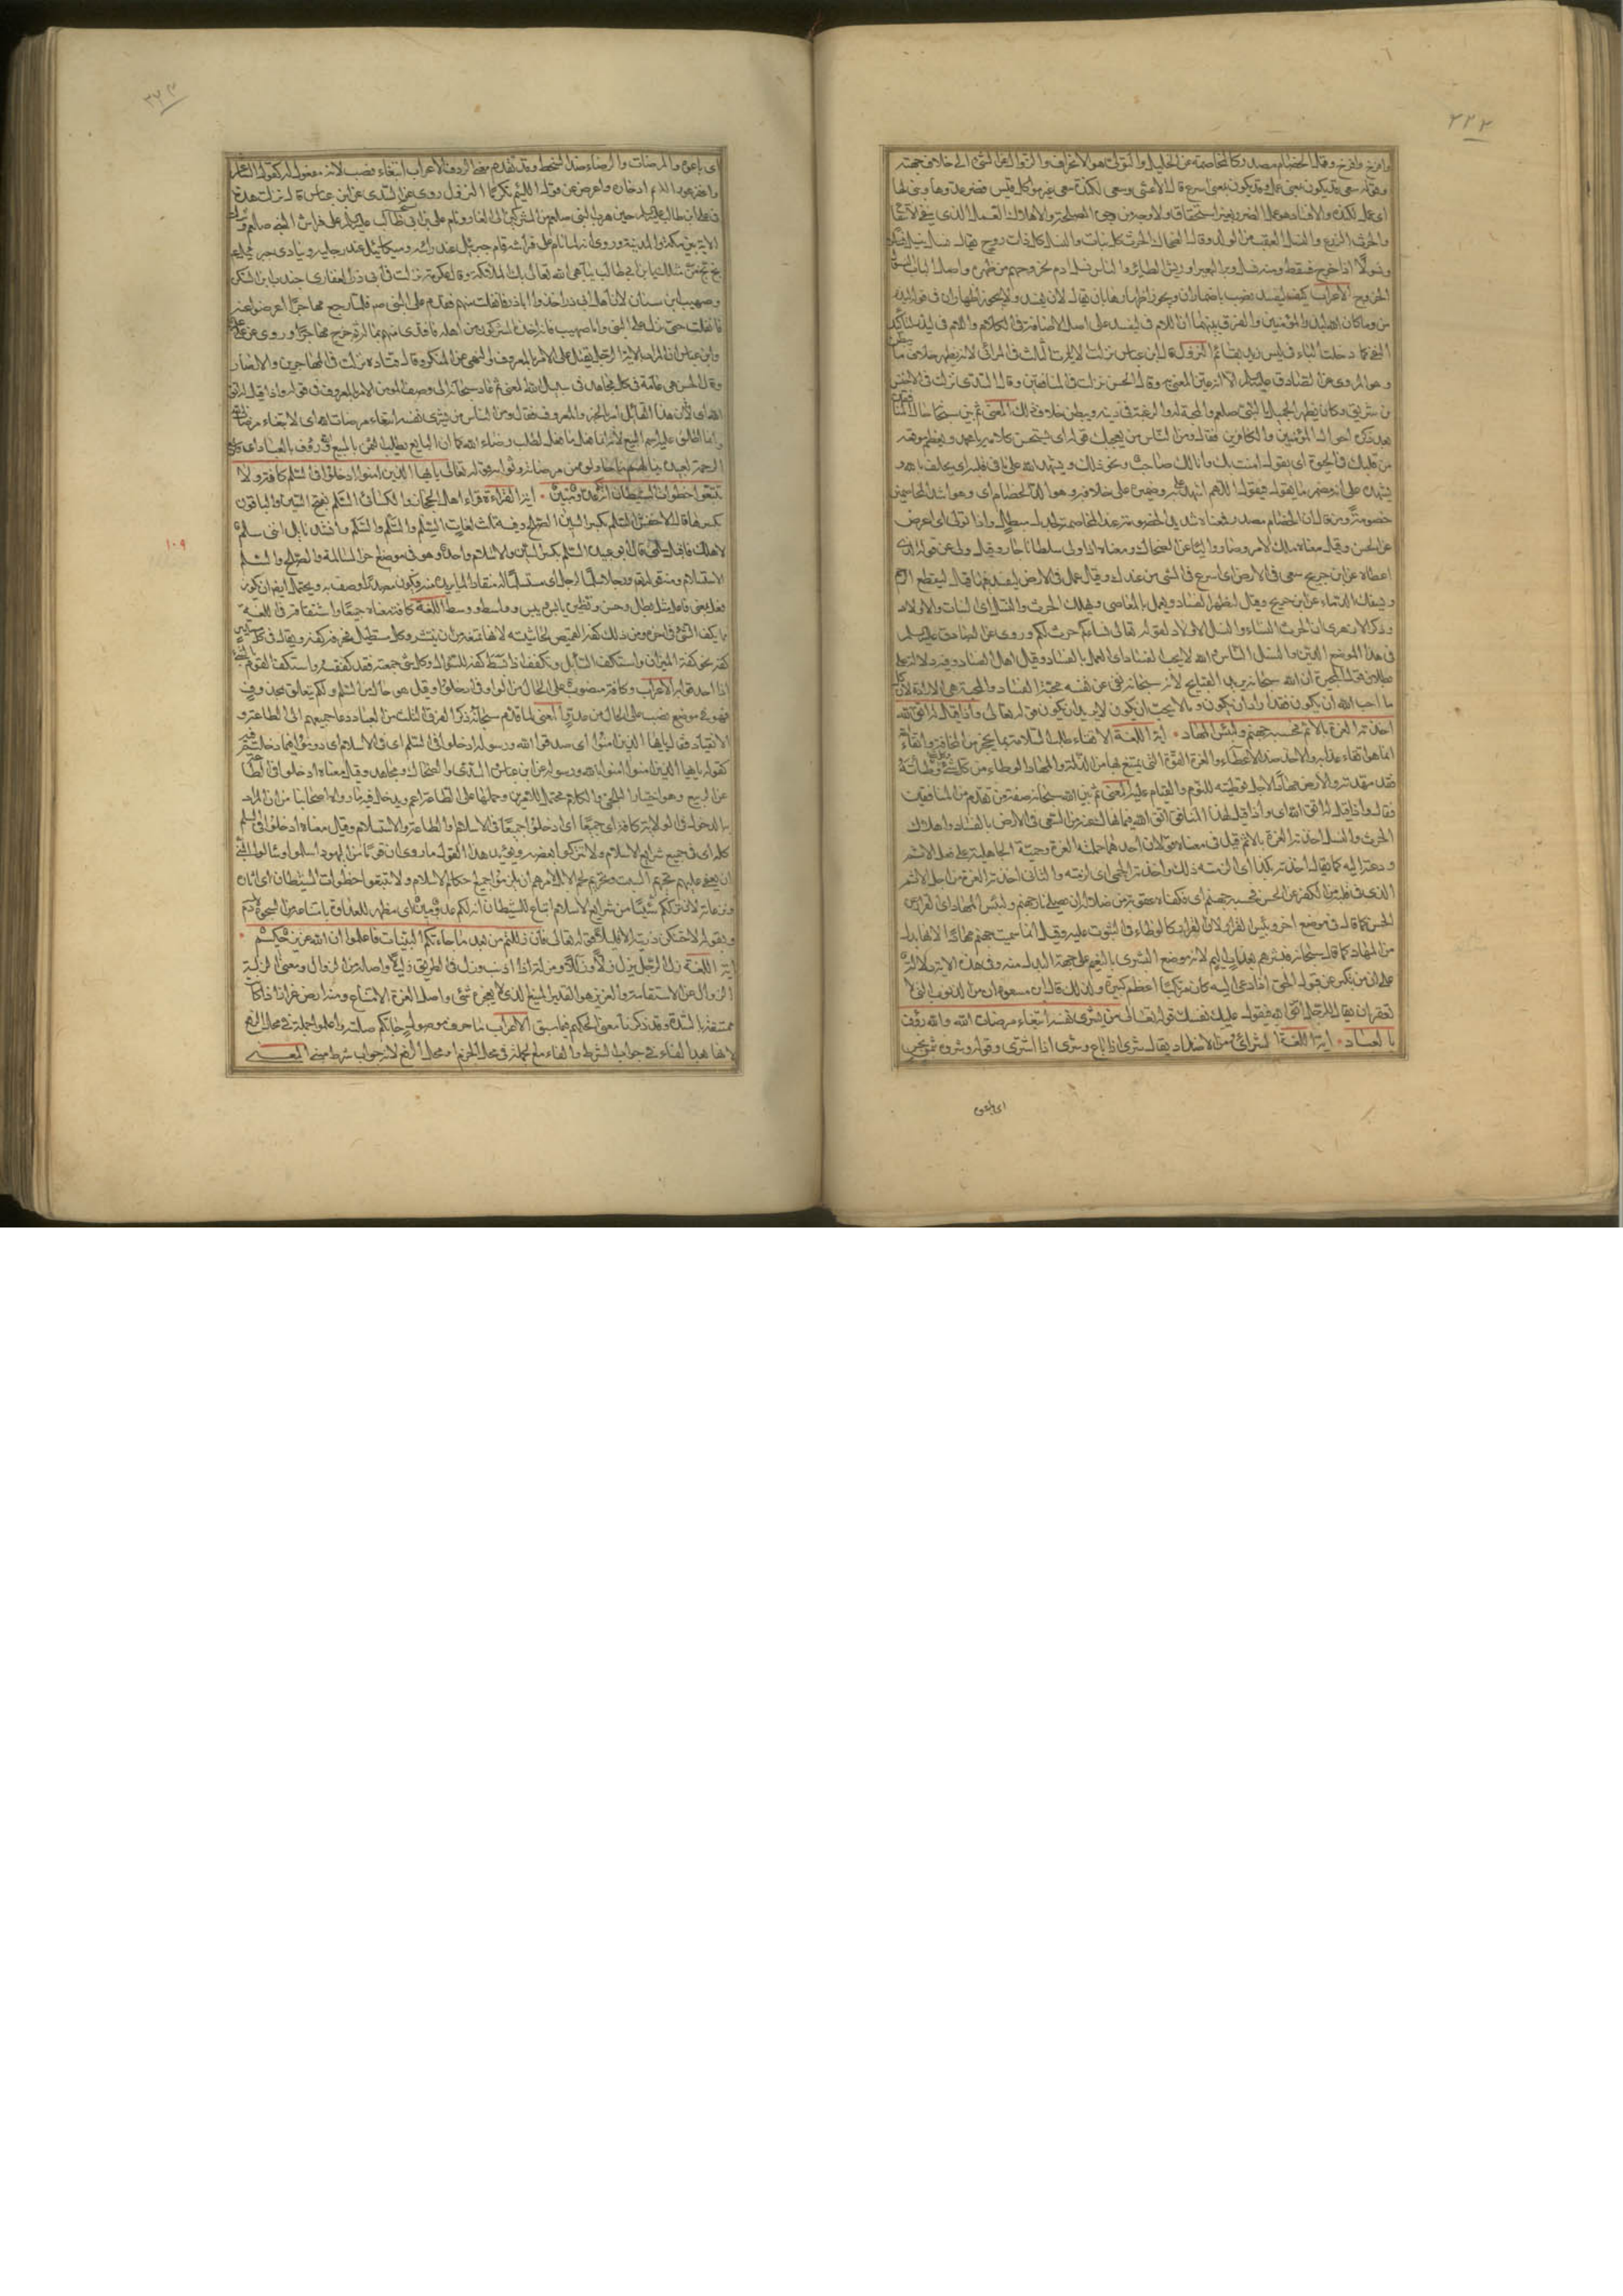 ٢٢٢
وافرخ وقال الخصام مصدر كالمخاصمة عن الخليل والتولي هو الانحراف والزوال عن الشئ الى خلاف جهته
وقوله سعى قد يكون بمعنى عمل وقد يكون بمعنى اسرع قال الاعشى وسعى لكندة سعى غير مواكل قيس فضر عدوها وبنى لها
اى عمل لكندة والافساد هو عمل الضرر بغير استحقاق ولا وجه من وجوه المصلحة والاهلاك العمل الذى ينفى الانتفاع
والحرث الزرع والنسل العقب من الولد وقال الضحاك الحرث كل نبات والنسل كل ذات روح يقال نسل ينسل
ونسولا اذا خرج فسقط ومنه نسل وبر البعير او ريش الطاير والناس نسل ادم لخروجهم من ظهره واصل الباب النسول
الخروج الاعراب ليفسد نصب باضمار ان ويجوز اظهارها بان يقال لان يفسد ولا يجوز اظهار ان فى قوله ليذر
من وما كان الله ليذر المؤمنين والفرق بينهما ان اللام فى ليفسد على اصل الاضافة فى الكلام واللام فى ليذر لتاكيد
النفى كما دخلت الباء فى ليس زيد بقائم النزول قال ابن عباس نزلت الايات الثلاث فى المرائى لانه يظهر خلاف ما يبطن
وهو المروى عن الصادق عليه السلام الا انه عين المعنى به وقال الحسن نزلت فى المنافقين وقال السدى نزلت فى الاخنس
بن شريق وكان يظهر الجميل بالنبى صلعم والمحبة له والرغبة فى دينه ويبطن خلاف ذلك المعنى ثم بين سبحانه حال المنافقين
بعد ذكره احوال المؤمنين والكافرين فقال ومن الناس من يعجبك قوله اى تستحسن كلامه يا محمد ويعظم موقعه
من قلبك فى الحيوة اى يقول امنت بك وانا لك صاحب ونحو ذلك ويشهد الله على ما فى قلبه اى يحلف بالله و
يشهده على انه مضمر ما يقول فيقول اللهم اشهد على به وضميره على خلافه وهو الد الخصام اى وهو اشد المخاصمين
خصومة ومن قال ان الخصام مصدر فمعناه شديد الخصومة عند المخاصمة جدل مبطل واذا تولى اى اعرض
عن الحسن وقيل معناه ملك الامر وصار واليا عن الضحاك ومعناه اذا ولى سلطانا جار وقيل ولى عن قوله الذى
اعطاه عن ابن جريح سعى فى الارض اى اسرع فى المشى من عندك وقيل عمل فى الارض ليفسد فيها قيل ليقطع الرحم
ويسفك الدماء عن ابن جريح وقيل ليظهر الفساد ويعمل بالمعاصى ويهلك الحرث والنسل اى النبات والاولاد
وذكر الازهرى ان الحرث النساء والنسل الاولاد لقوله تعالى نساءكم حرث لكم وروى عن الصادق عليه السلم
فى هذا الموضع الدين والنسل الناس والله لا يحب الفساد اى العمل بالفساد وقيل اهل الفساد وفيه دلالة على
بطلان قول المجبرة ان الله سبحانه يريد القبايح لانه سبحانه نفى عن نفسه محبة الفساد والمحبة هى الارادة لان كل
ما احب الله ان يكون فقد اراد ان يكون وما لا يحب ان يكون لا يريد ان يكون قوله تعالى واذا قيل له اتق الله
اخذته العزة بالاثم فحسبه جهنم ولبئس المهاد اية اللغة الاتقاء طلب السلامة بما يحجز من المخافة واتقاء الله
انما هو اتقاء عذابه والاخذ ضد الاعطاء والعزة القوة التى يمتنع بها من الذلة والمهاد الوطاء من كل شئ وكل شئ وطأته
فقد مهدته والارض مهاد لاجل توطئته للنوم والقيام عليه المعنى ثم بين الله سبحانه صفة من تقدم من المنافقين
فقال واذا قيل له اتق الله اى واذا قيل لهذا المنافق اتق الله فيما نهاك عنه من السعى فى الارض بالفساد واهلاك
الحرث والنسل اخذته العزة بالاثم قيل فى معناه قولان احدهما حملته العزة وحمية الجاهلية على فعل الاثم
ودعته اليه كما يقال اخذته بكذا اى الزمته ذلك واخذته الحمى اى لزمته والثانى اخذته العزة من اجل الاثم
الذى فى قلبه من الكفر عن الحسن فحسبه جهنم اى فكفاه عقوبة من ضلاله ان يصلى نار جهنم ولبئس المهاد اى القرار عن
الحسن كما قال فى موضع اخر وبئس القرار لان القرار كالوطاء فى الثبوت عليه وقيل انما سميت جهنم مهادا لانها بدل
من المهاد كما قال سبحانه فبشرهم بعذاب اليم لانه موضع البشرى بالنعيم على جهة البدل منه وفى هذه الاية دلالة
على ان من تكبر عن قبول الحق اذا دعى اليه كان مرتكبا اعظم كبيرة ولذلك قال ابن مسعود ان من الذنوب التى لا
تغفر ان يقال للرجل اتق الله فيقول عليك نفسك قوله تعالى ومن الناس من يشرى نفسه ابتغاء مرضات الله والله رؤف
بالعباد اية اللغة الشراء من الاضداد يقال شرى اذا باع وشرى اذا اشترى وقوله وشروه بثمن بخس
اى باعوه
اى باعوه والمرضات والرضاء ضد السخط وقد تقدم معنى الرؤف الاعراب ابتغاء نصب لانه مفعول له كقول الشاعر
واغفر عوراء الكريم ادخاره واعرض عن قول اللئيم تكرما النزول روى عن السدى عن ابن عباس قال نزلت هذه
فى على بن ابى طالب عليه السلم حين هرب النبى صلعم من المشركين الى الغار ونام على بن ابى طالب عليه السلم على فراش النبى صلعم ونزلت
الاية بين مكة والمدينة وروى انه لما نام على فراشه قام جبرئيل عند راسه وميكائيل عند رجليه وينادى جبرئيل
بخ بخ من مثلك يا بن ابى طالب يباهى الله تعالى بك الملائكة وقال عكرمة نزلت فى ابى ذر الغفارى جندب ابن السكن
وصهيب ابن سنان لان اهل ابى ذر اخذوا ابا ذر فانفلت منهم فقدم على النبى ص فلما رجع مهاجرا اعرضوا عنه
فانفلت حتى نزل على النبى واما صهيب فانه اخذه المشركون من اهله فافتدى منهم بماله ثم خرج مهاجرا وروى عن على
وابن عباس ان المراد بالاية الرجل يقتل على الامر بالمعروف والنهى عن المنكر وقال قتادة نزلت فى المهاجرين والانصار
وقال الحسن هى عامة فى كل مجاهد فى سبيل الله المعنى ثم عاد سبحانه الى وصف المومن الامر بالمعروف فى قوله واذا قيل له اتق
الله اى لان هذا القائل امر بالخير والمعروف فقال ومن الناس من يشرى نفسه ابتغاء مرضات الله اى لابتغاء مرضات الله
وانما اطلق عليه اسم البيع لانه انما فعل ما فعل لطلب رضاء الله كما ان البايع يطلب الثمن بالبيع والله رؤف بالعباد اى واسع
الرحمة بعبيده ينيلهم ما حاولوه من مرضاته وثوابه قوله تعالى يا ايها الذين امنوا ادخلوا فى السلم كافة ولا
تتبعوا خطوات الشيطان انه لكم عدو مبين اية القراءة قراء اهل الحجاز والكسائى السلم بفتح السين والباقون
بكسرها قال الاخفش السلم بكسر السين الصلح وفيه ثلث لغات السلم والسلم والسلم وانشد نابل اننى سلم
لاهلك فاقبلى سلمى قال ابو عبيدة السلم بكسر السين والاسلام واحد وهو فى موضع اخر المسالمة والصلح والسلم
الاستسلام ومنه قوله ورجلا سلما لرجل اى مستسلما له منقادا لما يريده منه فيكون مصدرا وصف به ويحتمل ايضا ان يكون
فعلا بمعنى فاعل مثل بطل وحسن ونظيره يابس ويبس وواسط ووسط اللغة كافة معناه جميعا واشتقاقه فى اللغة
ما يكف الشئ فى اخره ومن ذلك كفة القميص لحاشيته لانها تمنعه من ان ينتشر وكل مستطيل فحرفه كفة ويقال فى كل مستدير
كفة نحو كفة الميزان واستكف السائل وتكفف اذا بسط كفه للسؤال وكل شئ جمعته فقد كففته واستكف القوم بالشئ
اذا احدقوا به الاعراب وكافة منصوب على الحال من الواو فى ادخلوا وقيل هو حال من السلم ولكم يتعلق بعدو
فهو فى موضع نصب على الحال من عدو المعنى لما قدم سبحانه ذكر الفرق الثلث من العباد دعا جميعهم الى الطاعة و
الانقياد فقال يا ايها الذين امنوا اى صدقوا الله ورسوله ادخلوا فى السلم اى فى الاسلام اى دوموا فيما دخلتم فيه
كقوله يا ايها الذين امنوا امنوا بالله ورسوله عن ابن عباس والسدى والضحاك ومجاهد وقيل معناه ادخلوا فى الطاعة
عن الربيع وهو اختيار البلخى والكلام محتمل للامرين وحملها على الطاعة اعم ويدخل فيه ما رواه اصحابنا من ان المراد
به الدخول فى الولاية كافة اى جميعا اى ادخلوا جميعا فى الاسلام والطاعة والاستسلام وقيل معناه ادخلوا فى السلم
كله اى فى جميع شرايع الاسلام ولا تتركوا بعضه ويؤيد هذا القول ما روى ان قوما من اليهود اسلموا وسألوا النبى
ان يبقى عليهم تحريم السبت وتحريم لحم الابل فامرهم ان يلزموا جميع احكام الاسلام ولا تتبعوا خطوات الشيطان اى اثاره
ونزغاته لان ترككم شيئا من شرايع الاسلام اتباع للشيطان انه لكم عدو مبين اى مظهر للعداوة بامتناعه من السجود لادم
وبقوله لاحتنكن ذريته الا قليلا قوله تعالى فان زللتم من بعد ما جاءتكم البينات فاعلموا ان الله عزيز حكيم
اية اللغة زل الرجل يزل زلا وزللا ومزلة اذا اذنب وزل فى الطريق زليلا واصله من الزوال ومعنى الزلة
الزوال عن الاستقامة والعزيز هو القدير المنيع الذى لا يعجزه شئ واصل العزة الامتناع ومنه ارض عزاز اذا كانت
ممتنعة بالشدة وقد ذكرنا معنى الحكيم فيما سبق الاعراب ما حرف موصول وجاءتكم صلته واعلموا جملة فى محل الرفع
لانها بعد الفاء فى جواب الشرط والفاء مع الجملة فى محل الجزم او محل الرفع لانه جواب شرط مبنى المعنى
١٠٩